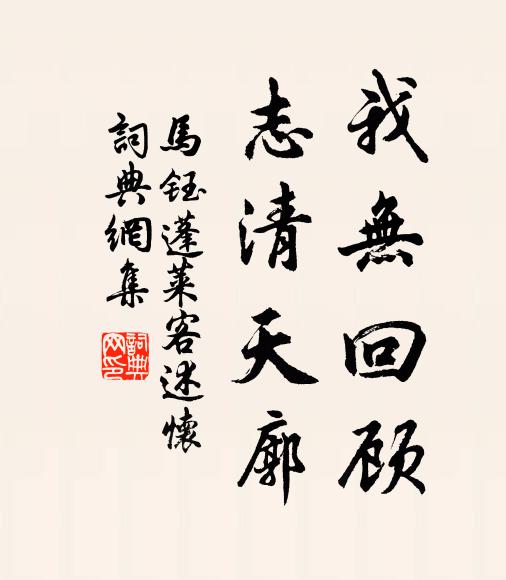 我無回顾
志清天廓
馬鈺蓬萊客述懷
詞典網集
詞典
网印